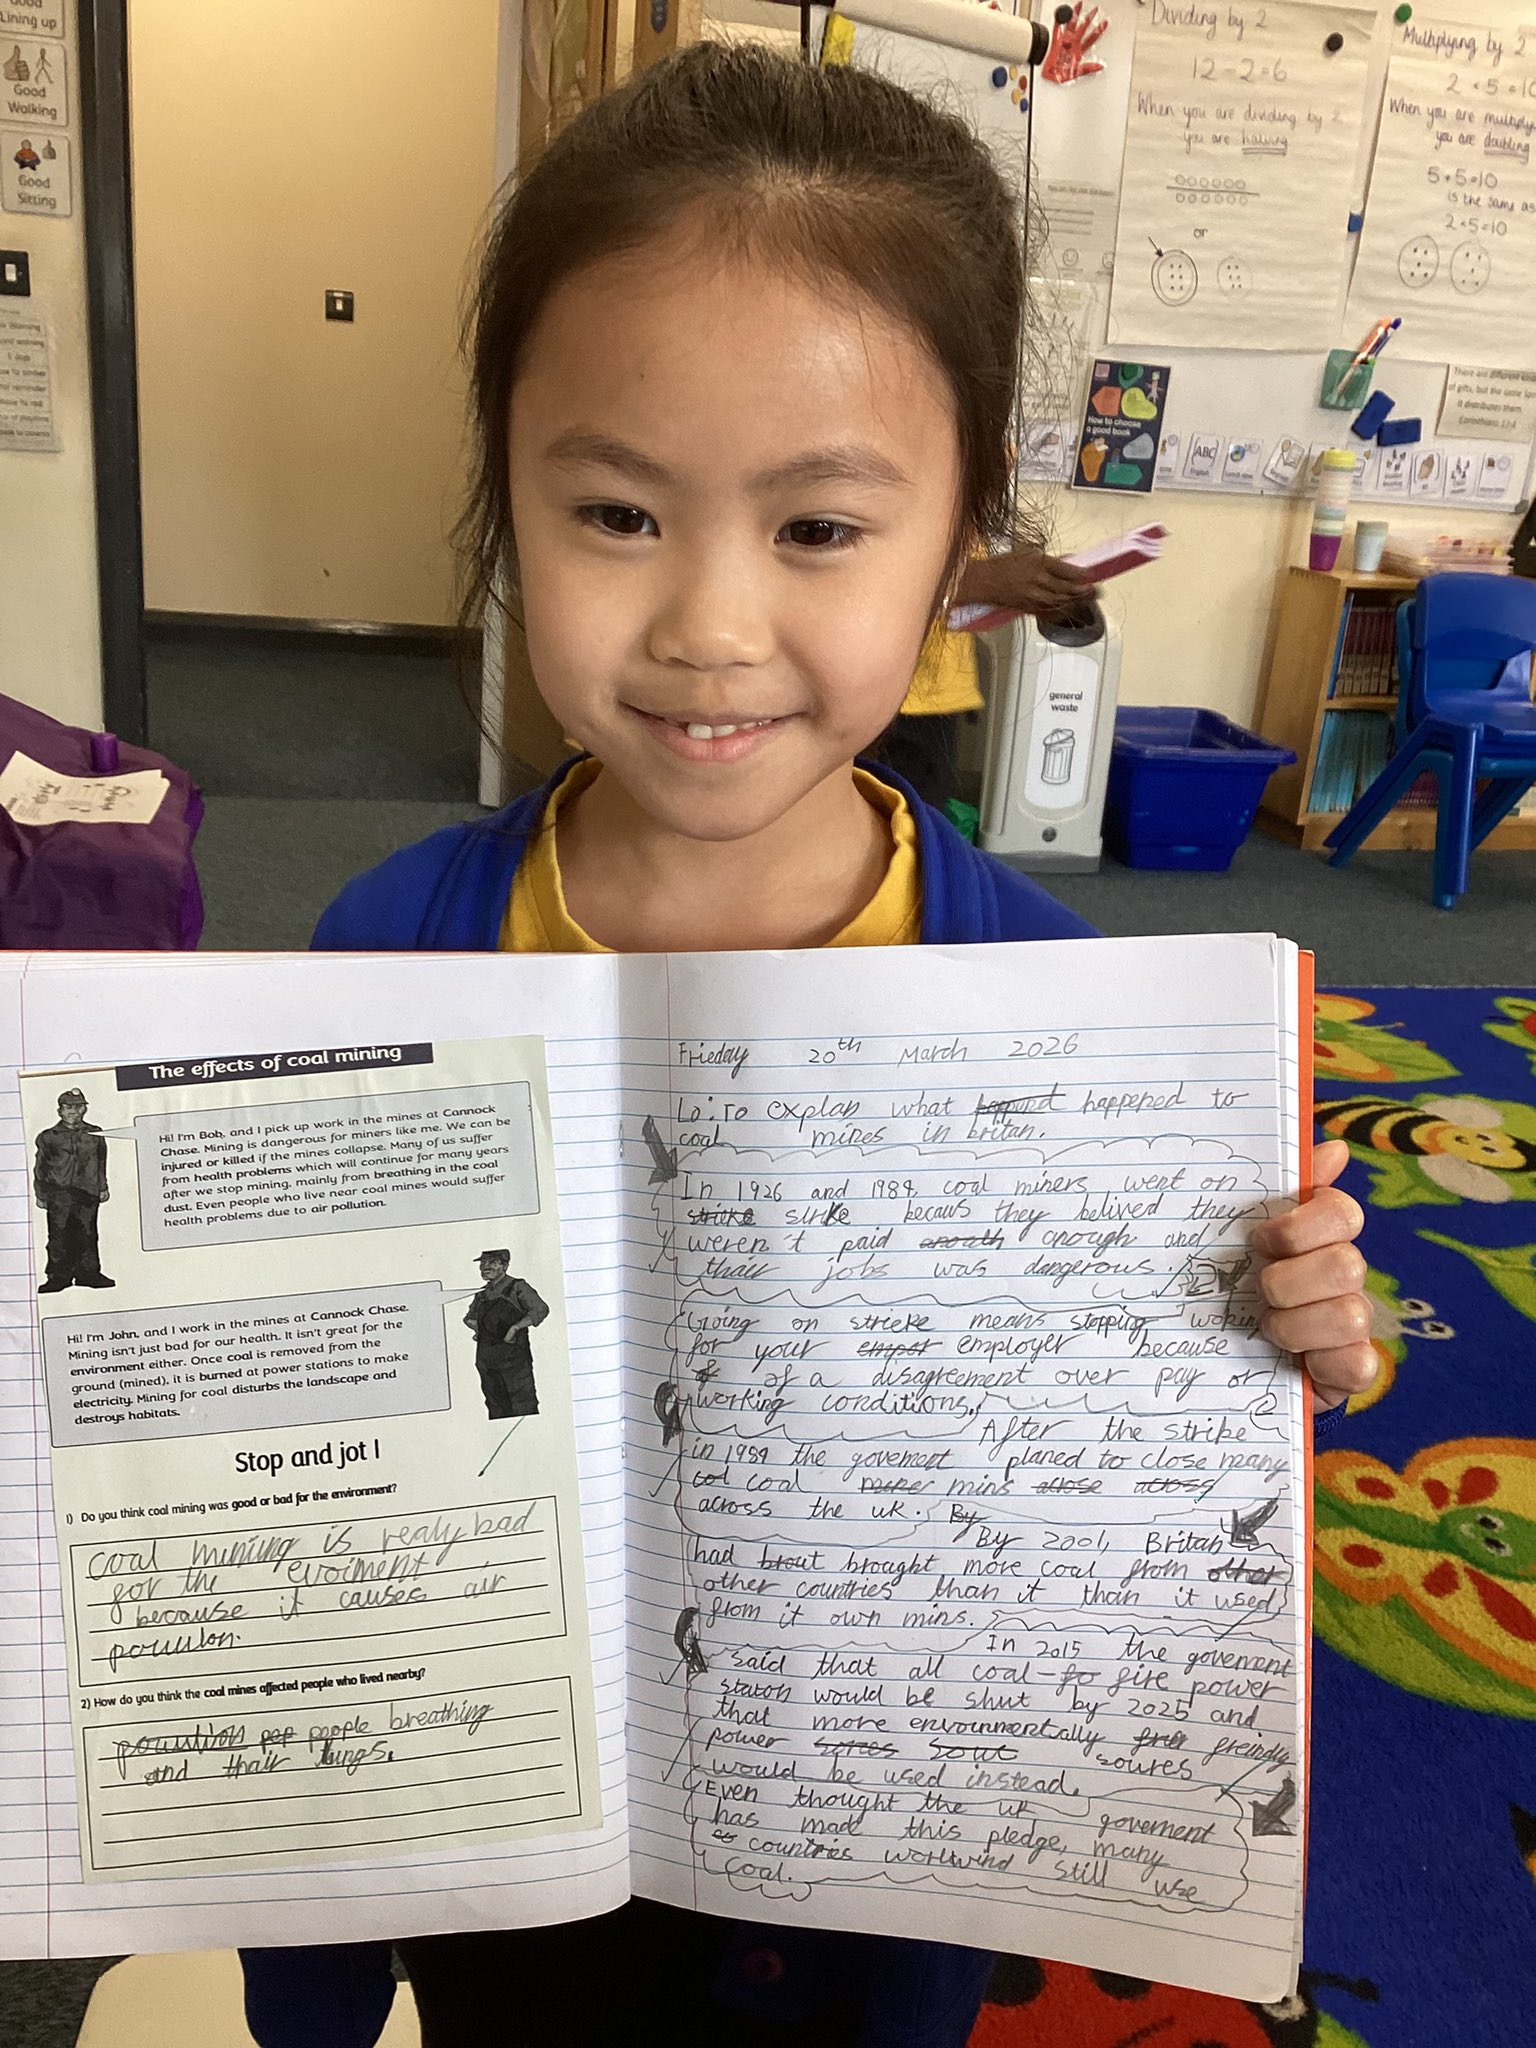 Good
Lining up
Good
Walking
Good
Sitting
Dividing by 2
12 ÷ 2 = 6
When you are dividing by 2
you are halving
or
Multiplying by 2
2 × 5 = 10
When you are multiply
you are doubling
5 + 5 = 10
is the same as
2 × 5 = 10
How to choose
a good book
ABC
English
general
waste
The effects of coal mining
Hi! I'm Bob, and I pick up work in the mines at Cannock
Chase. Mining is dangerous for miners like me. We can be
injured or killed if the mines collapse. Many of us suffer
from health problems which will continue for many years
after we stop mining, mainly from breathing in the coal
dust. Even people who live near coal mines would suffer
health problems due to air pollution.
Hi! I'm John, and I work in the mines at Cannock Chase.
Mining isn't just bad for our health. It isn't great for the
environment either. Once coal is removed from the
ground (mined), it is burned at power stations to make
electricity. Mining for coal disturbs the landscape and
destroys habitats.
Stop and jot!
1) Do you think coal mining was good or bad for the environment?
coal mining is realy bad
for the evoiment
because it causes air
2) How do you think the coal mines affected people who lived nearby?
people breathing
and thair lungs.
Frieday 20th March 2026
Lo: To explan what happened to
coal mines in britan.
In 1926 and 1984, coal miners went on
strieke strike becaus they belived they
weren't paid enough and
thair jobs was dangerous.
Going on strieke means stopping woking
for your employer because
of of a disagreement over pay or
working conditions.
After the strike
in 1984 the goverment planed to close many
col coal miner mins across
across the uk. By
By 2001, Britan
had brout brought more coal from other
other countries than it than it used
from it own mins.
In 2015 the goverment
said that all coal-fo fire power
staton would be shut by 2025 and
that more environmentally freindly
power soures
would be used instead.
Even thought the uk goverment
has made this pledge, many
countries worlwind still use
coal.